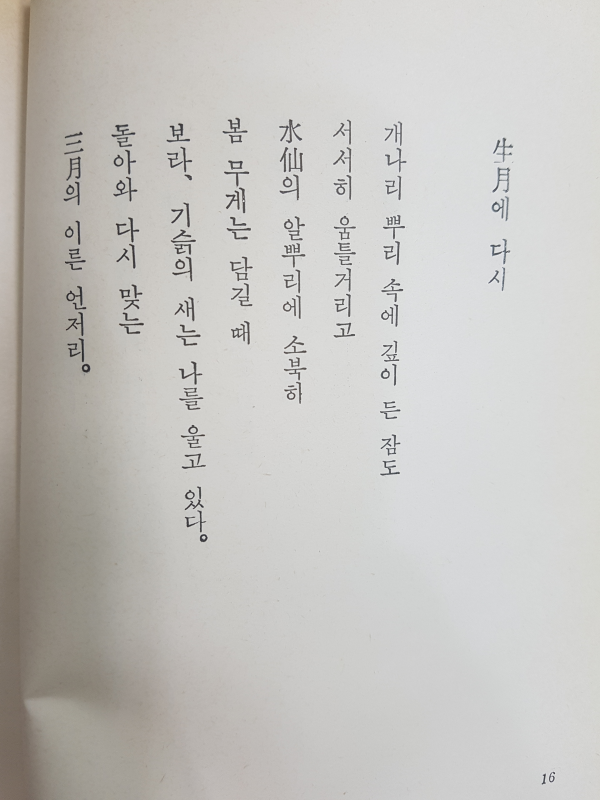 生月에 다시
개나리 뿌리 속에 깊이 든 잠도
서서히 움틀거리고
水仙의 알뿌리에 소북하
봄 무게는 담길 때
보라、기슭의 새는 나를 울고 있다。
돌아와 다시 맞는
三月의 이른 언저리。
16